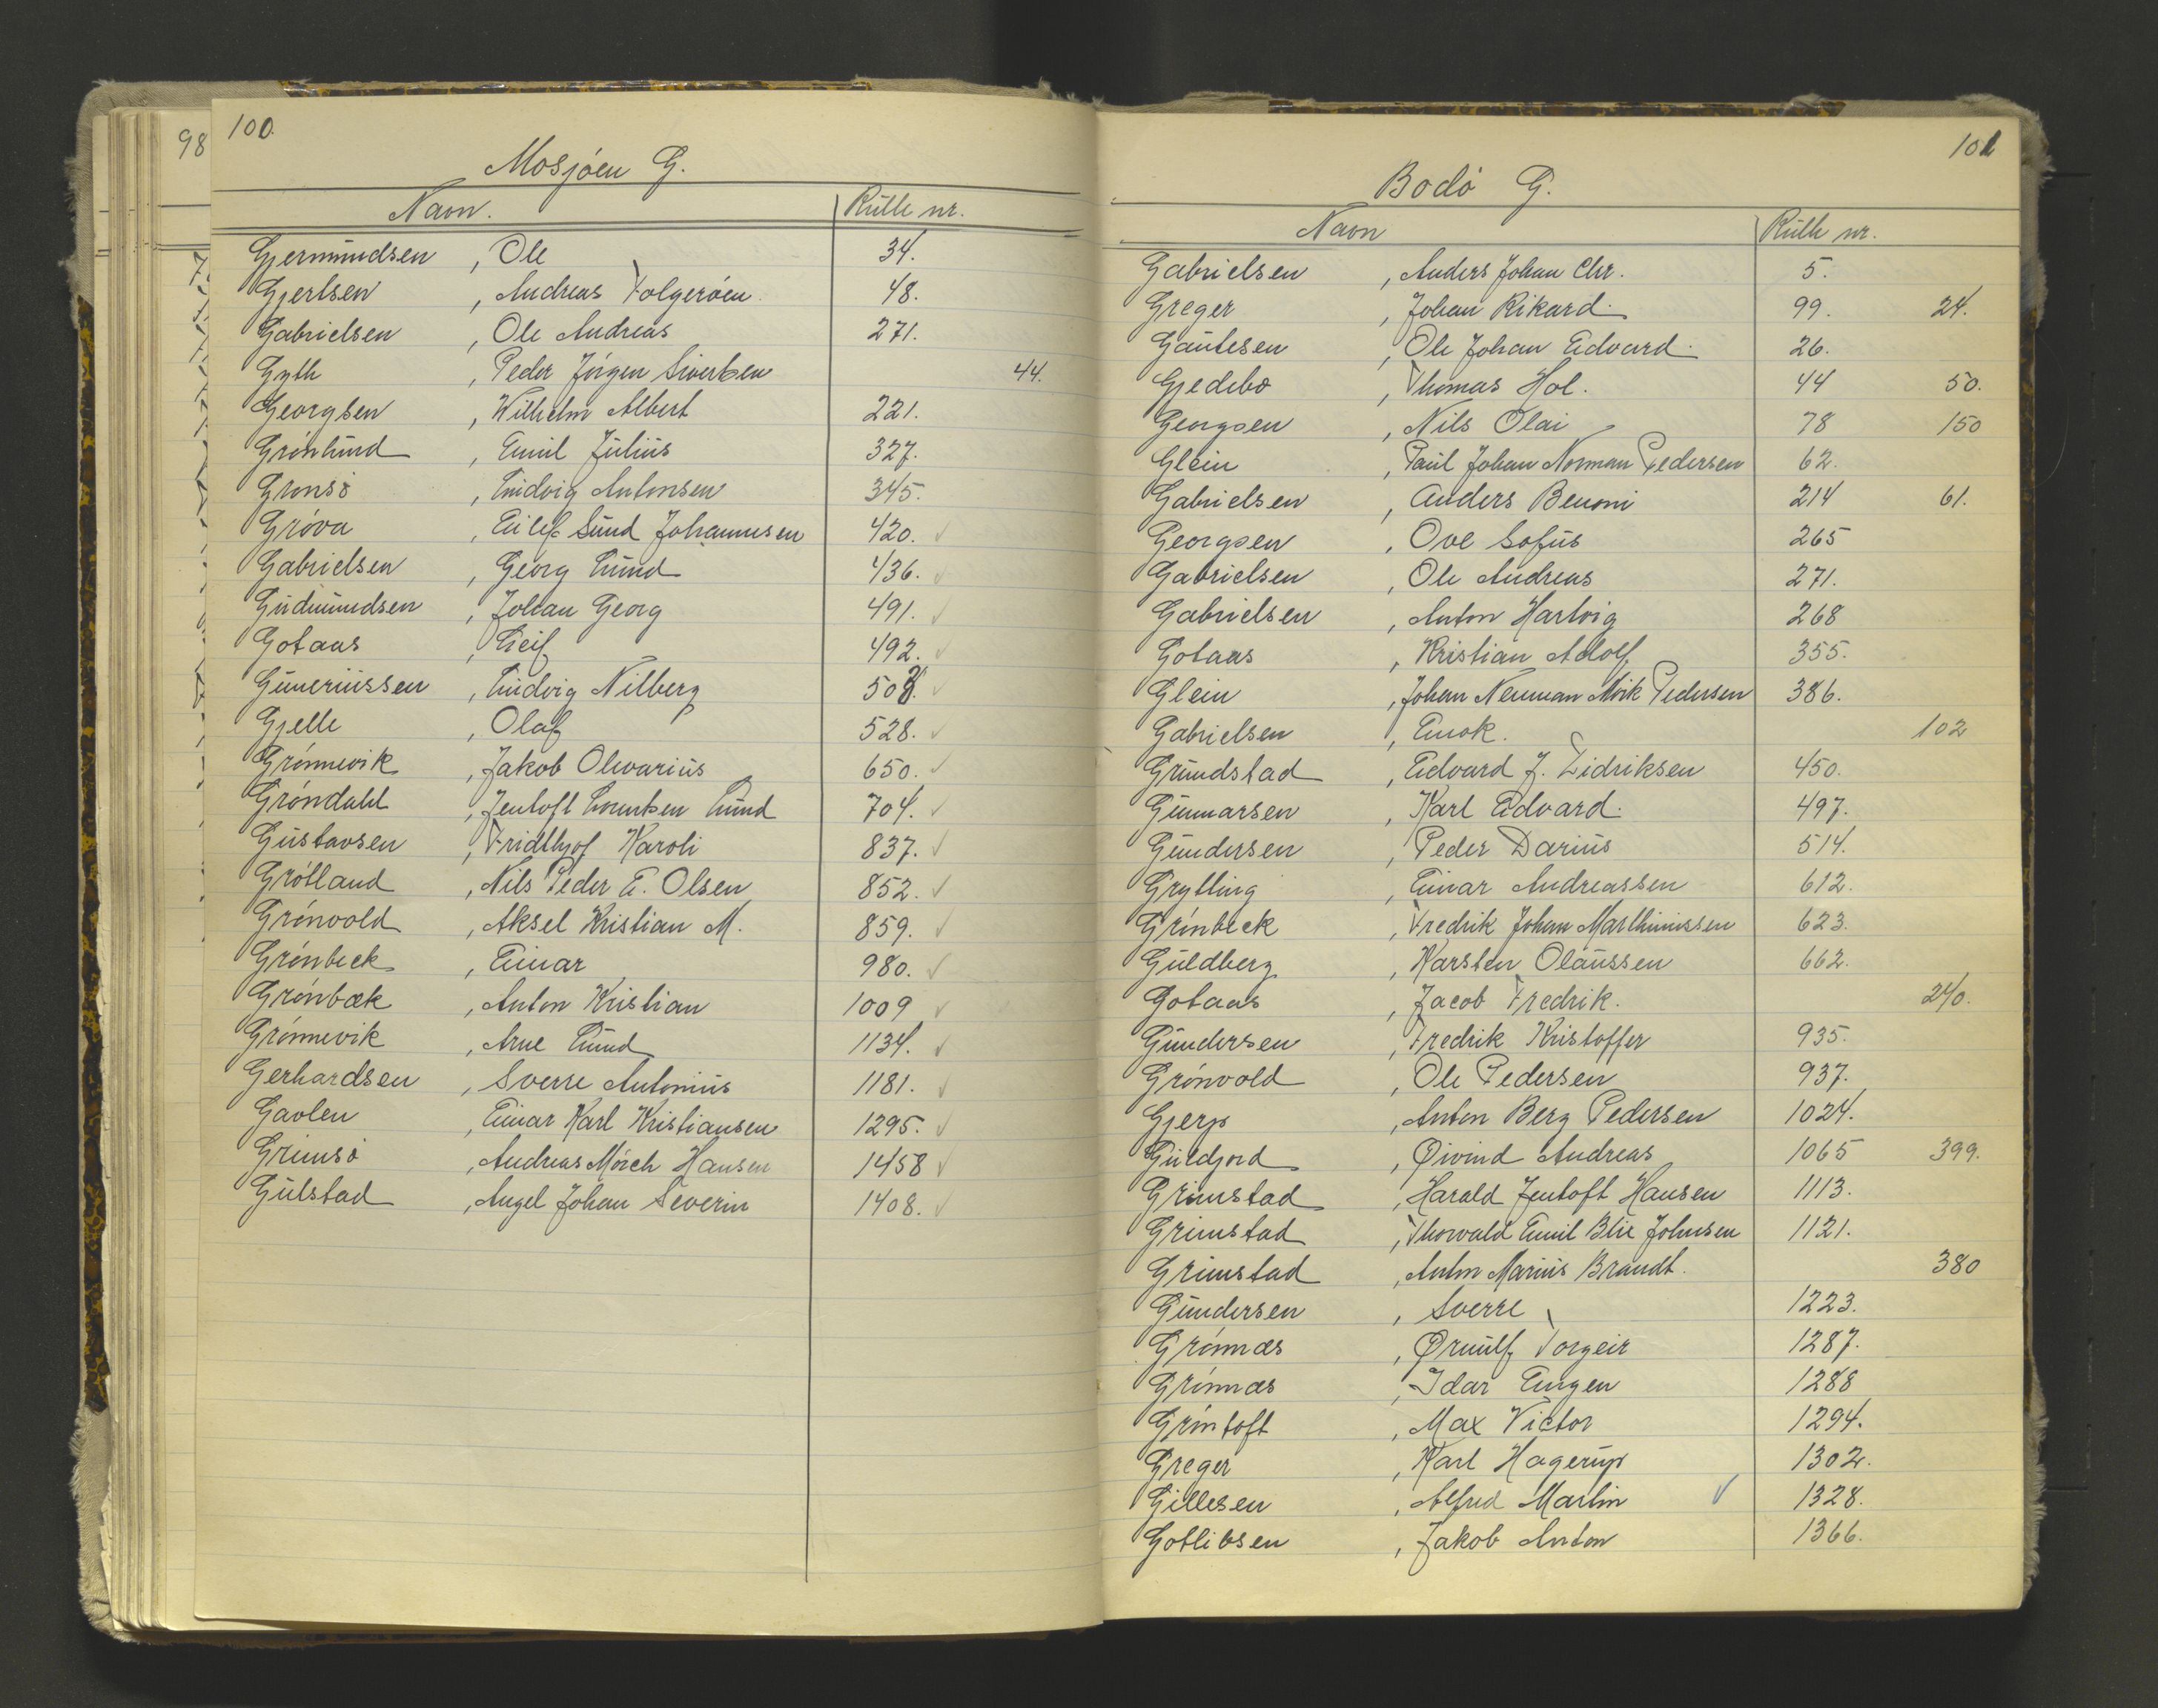 98
100.
Mosjøen G.
Navn. Rulle nr.
Gjermundsen, Ole 34.
Gjertsen, Andreas Tolgerøen 48.
Gabrielsen, Ole Andreas 271.
Gyth, Peder Jørgen Sivertsen 44.
Georgsen, Wilhelm Albert 221.
Grønlund, Emil Julius 327.
Grønsø, Ludvig Antonsen 345.
Grøva, Eilef Sund Johannesen 420. ✓
Gabrielsen, Georg Lund 436. ✓
Gudmundsen, Johan Georg 491. ✓
Gotaas, Leif 492. ✓
Guneriussen, Ludvig Nilberg ✓
Gjelle, Olaf 528. ✓
Grønnevik, Jakob Olevarius 650. ✓
Grøndahl, Jentoft Lund 704. ✓
Gustavsen, Fridthjof Karoli 837. ✓
Grøtland, Nils Peder E. Olsen 852. ✓
Grønvold, Aksel Kristian M. 859. ✓
Grønbeck, Einar 980. ✓
Grønbæk, Anton Kristian 1009 ✓
Grønnevik, Arne Lund 1134. ✓
Gerhardsen, Sverre Antonius 1181. ✓
Gavlen, Einar Karl Kristiansen 1295. ✓
Grimsø, Andreas Mørch Hansen 1458 ✓
Gulstad, Angel Johan Severin 1408. ✓
101
Bodø G.
Navn Rulle nr.
Gabrielsen, Anders Johan Chr. 5.
Greger, Johan Rikard 99. 24.
Gautesen, Ole Johan Edvard 26.
Gjedebo, Thomas Hol. 44 50.
Georgsen, Nils Olai 78 150
Glein, Paul Johan Norman Pedersen 62.
Gabrielsen, Anders Benoni 214 61.
Georgsen, Ove Sofus 265
Gabrielsen, Ole Andreas 271.
Gabrielsen, Anton Hartvig 268
Gotaas, Kristian Adolf 355.
Glein, Johan Neuman Mørk Pedersen 386.
Gabrielsen, Enok. 102
Grundstad, Edvard J. Didriksen 450.
Gunnarsen, Karl Edvard. 497.
Gundersen, Peder Darius 514.
Grytting, Einar Andreassen 612.
Grønbeck, Fredrik Johan Marthinussen 623.
Guldberg, Karsten Olaussen 662.
Gotaas, Jacob Fredrik. 240.
Gundersen, Fredrik Kristoffer 935.
Grønvold, Ole Pedersen 937.
Gjerp, Anton Berg Pedersen 1024.
Guldjord, Øivind Andreas 1065 399.
Grimstad, Harald Jentoft Hansen 1113.
Grimstad, Thorvald Emil Blix Johnsen 1121.
Grimstad, Anton Marius Brandt. 380
Gundersen, Sverre 1223.
Grønnæs, Ørnulf Torgeir 1287.
Grønnæs, Idar Eugen 1288
Grøntoft, Max Victor 1294.
Greger, Karl Hagerup 1302.
Gillesen, Alfred Martin ✓ 1328.
Gotlibsen, Jakob Anton 1366.